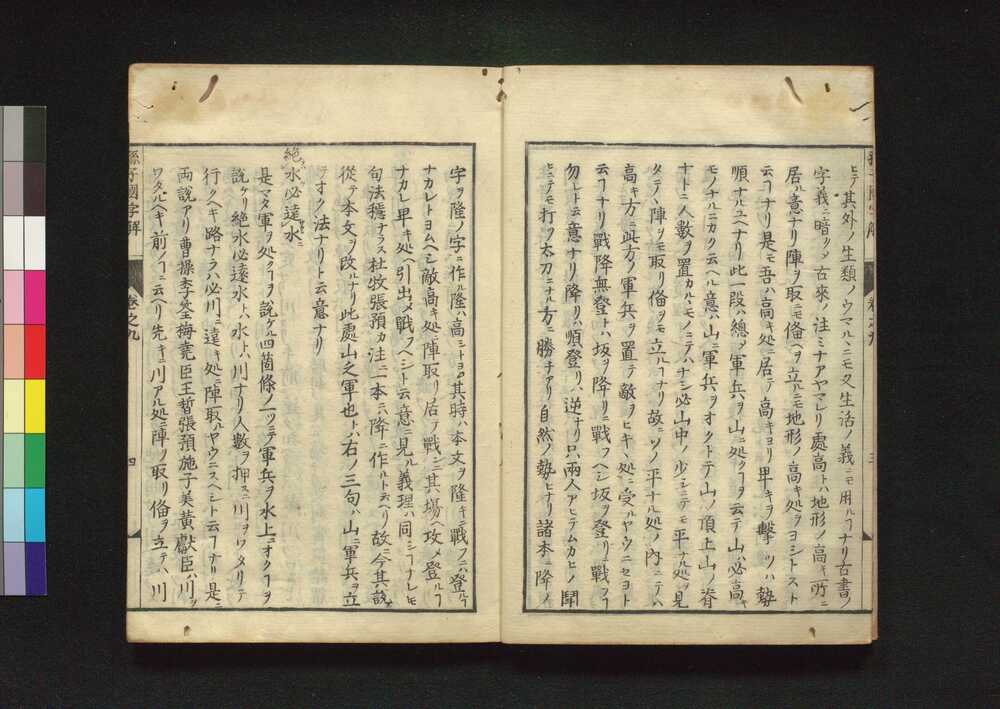 ヒテ其外ノ生類ノウマルヽニモ又生活ノ義ニモ用ルヿナリ古書ノ
字義ニ暗クメ古來ノ注ミナアヤマレリ處高トハ地形ノ高キ所ニ
居ル意ナリ陣ヲ取ニモ備ヘヲ立ルニモ地形ノ高キ処ヲヨシトスト
云フナリ是モ吾ハ高キ処ニ居テ高キヨリ卑キヲ撃ツハ勢
順ナルユヘナリ此一段ハ總メ軍兵ヲ山ニ処クヿヲ云テ山ハ必高キ
モノナルニカク云ヘル意ハ山ニ軍兵ヲオクトテ山ノ頂上山ノ脊
ナトニ人數ヲ置カルヽモノニテハナシ必山中ノ少シニテモ平ナル処ヲ見
タテヽ陣ヲモ取リ備ヲモ立ルヿナリ故ニソノ平ナル処ノ内ニテハ
高キ方ニ此方ノ軍兵ヲ置テ敵ヲヒキヽ処ニ受ルヤウニセヨト
云フナリ戰降無登トハ坂ヲ降リニ戰フヘシ坂ヲ登リニ戰フヿ
勿レト云意ナリ降リハ順登リハ逆ナリ只兩人アヒテムカヒノ鬪
ヒニテモ打ツ太刀ニナル方ニ勝チアリ自然ノ勢ヒナリ諸本ニ降ノ
字ヲ隆ノ字ニ作ル隆ハ高シトヨム其時ハ本文ヲ隆キニ戰フニハ登ルヿ
ナカレトヨムヘシ敵高キ処ニ陣取リ居テ戰シニ其場ヘ攻メ登ルヿ
ナカレ卑キ処ヘ引出メ戰フヘシト云意ニ見ル義理ハ同シヿナレモ
句法穩ナラス杜牧張預カ注ニ一本ニハ降ニ作ルトイヘリ故ニ今其說ニ
從テ本文ヲ改ルナリ此處山之軍也トハ右ノ三句ハ山ニ軍兵ヲ立
テオク法ナリト云意ナリ
絕水必遠水
是マタ軍ヲ処クヿヲ說ケル四箇條ノ一ツニテ軍兵ヲ水上ニオクヿヲ
說ケリ絕水必遠水トハ水トハ川ナリ人數ヲ押スニ川ヲワタリテ
行クヘキ路ナラハ必川ニ遠キ処ニ陣取ルヤウニスヘシト云フナリ是ニ
兩說アリ曹操李筌梅堯臣王晳張預施子美黃獻臣ハ川ヲ
ワタルヘキ前ノヿニ云ヘリ先キニ川アル処ニ陣ヲ取リ備ヲ立テハ川
孫子國字解
卷之九
四